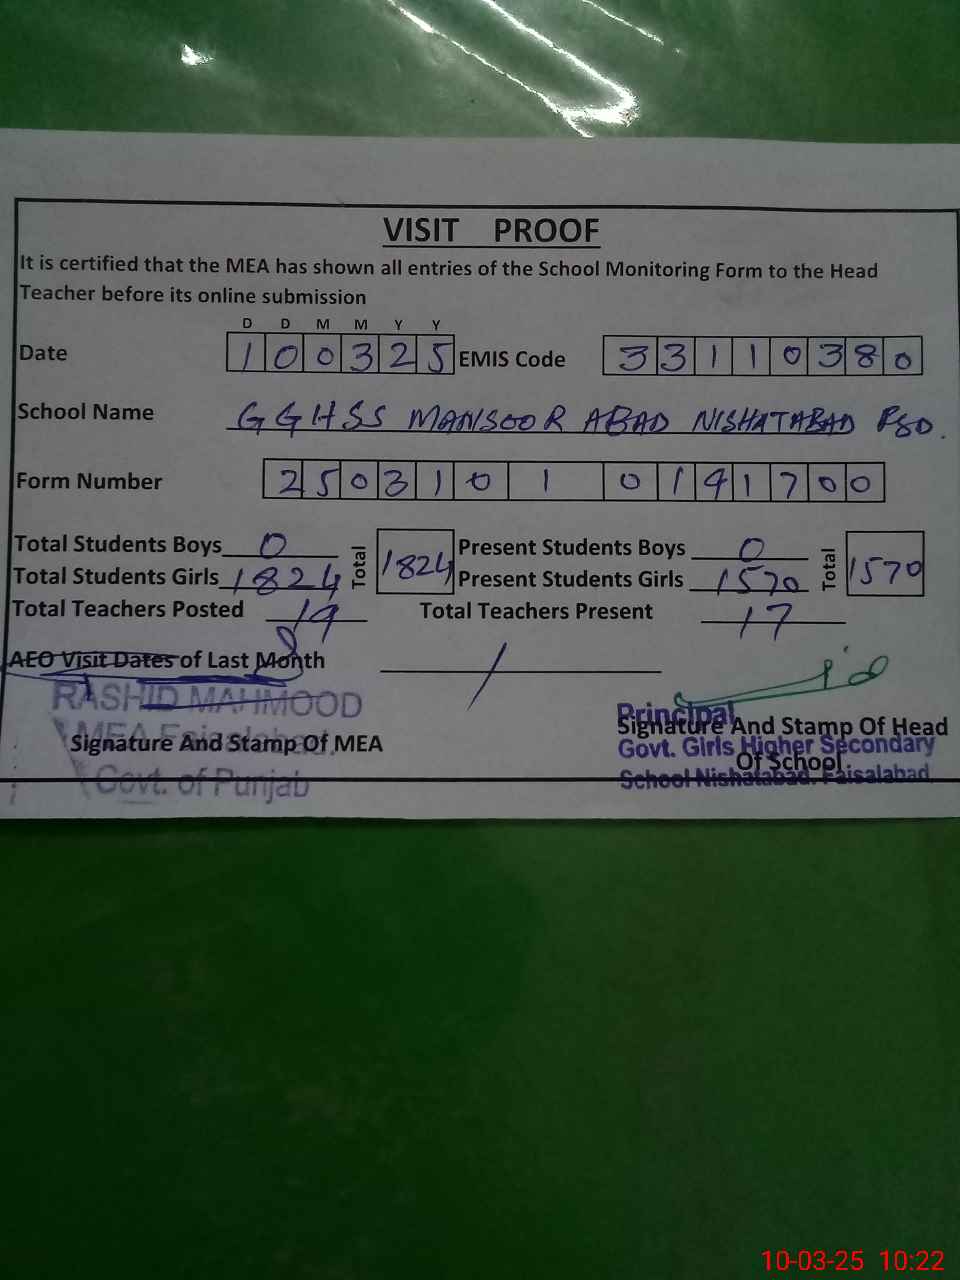 VISIT PROOF
It is certified that the MEA has shown all entries of the School Monitoring Form to the Head
Teacher before its online submission
D D M M Y Y
Date 1 0 0 3 2 5 EMIS Code 3 3 1 1 0 3 8 0
School Name GGHSS MANSOOR ABAD NISHATABAD FSD.
Form Number 2 5 0 3 1 0 1 0 1 4 1 7 0 0
Total Students Boys 0 Total 1824 Present Students Boys 0 Total 1570
Total Students Girls 1824 Present Students Girls 1570
Total Teachers Posted 19 Total Teachers Present 17
AEO Visit Dates of Last Month /
RASHID MAHMOOD
MEA Faisalabad
Govt. of Punjab
Signature And Stamp Of MEA
Principal
Govt. Girls Higher Secondary
School Nishatabad. Faisalabad
Signature And Stamp Of Head
Of School
10-03-25 10:22